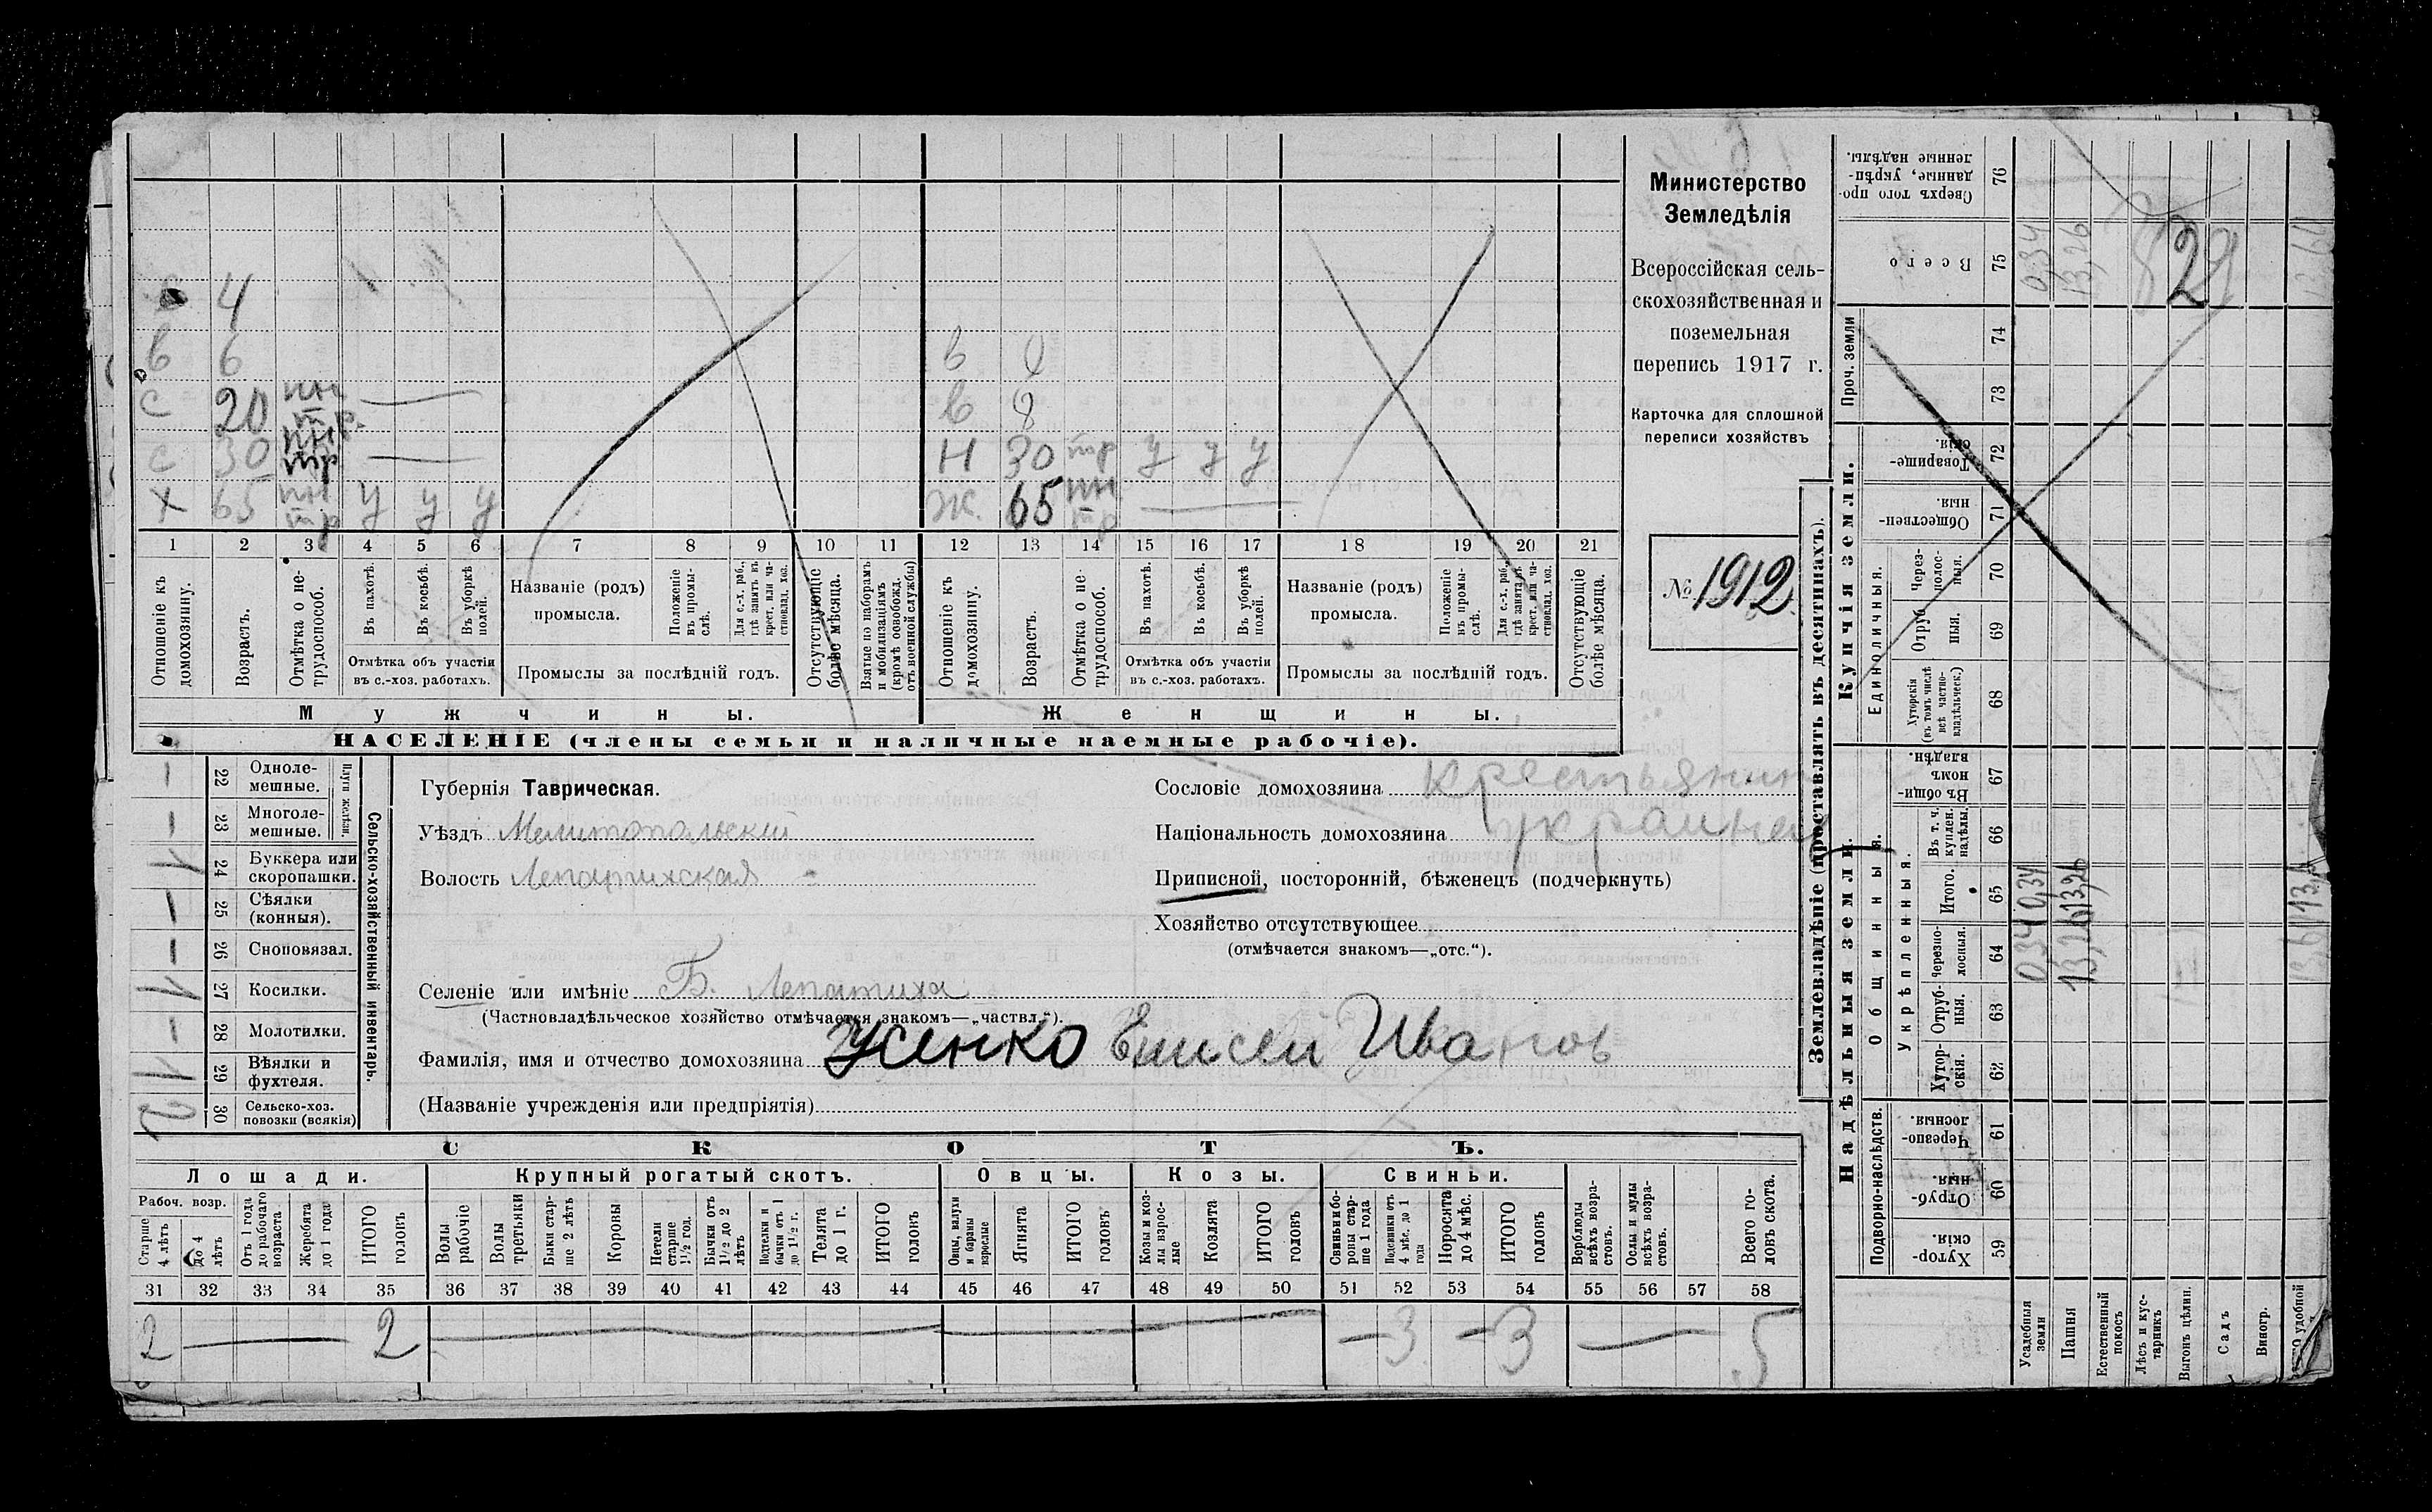 4
в 6 в
с 20 в 8
с 30 пн тр Н 30 тр у у у
х 65 пн тр у у у Ж. 65 пн тр
1 2 3 4 5 6 7 8 9 10 11 12 13 14 15 16 17 18 19 20 21
Отношеніе къ домохозяину.
Возрастъ.
Отмѣтка о не-трудоспособ.
Въ пахотѣ.
Въ косьбѣ.
Въ уборкѣ полей.
Отмѣтка объ участіи
въ с.-хоз. работахъ.
Названіе (родъ)
промысла.
Положеніе въ промы-слѣ.
Для с.-х. раб., гдѣ занятъ въ крест. или ча-стновлад. хоз.
Промыслы за послѣдній годъ.
Отсутствующіе болѣе мѣсяца.
Взятые по наборамъ и мобилизаціямъ (кромѣ освобожд. отъ военной службы)
Отношеніе къ домохозяину.
Возрастъ.
Отмѣтка о не трудоспособ.
Въ пахотѣ.
Въ косьбѣ.
Въ уборкѣ полей.
Отмѣтка объ участіи
въ с.-хоз. работахъ.
Названіе (родъ)
промысла.
Положеніе въ промы-слѣ.
Для с.-х. раб., гдѣ занята въ крест. или ча-стновлад. хоз.
Промыслы за послѣдній годъ.
Отсутствующіе болѣе мѣсяца.
Мужчины. Женщины.
НАСЕЛЕНІЕ (члены семьи и наличные наемные рабочіе).
Министерство
Земледѣлія
Всероссійская сель-
скохозяйственная и
поземельная
перепись 1917 г.
Карточка для сплошной
переписи хозяйствъ
№ 1912
Плуги желѣзн.
Сельско-хозяйственный инвентарь.
— 22 Одноле-мешные.
— 23 Многоле-мешные.
1 24 Буккера или скоропашки.
— 25 Сѣялки (конныя).
— 26 Сноповязал.
1 27 Косилки.
— 28 Молотилки.
1 29 Вѣялки и фухтеля.
2 30 Сельско-хоз. повозки (всякія)
Губернія Таврическая.
Уѣздъ Мелитопольскій
Волость Лепатихская
Селеніе или имѣніе Б. Лепатиха
(Частновладѣльческое хозяйство отмѣчается знакомъ—„частвл.“).
Фамилія, имя и отчество домохозяина Усенко Елисей Иванов
(Названіе учрежденія или предпріятія)
Сословіе домохозяина крестьянин
Національность домохозяина украинец
Приписной, посторонній, бѣженецъ (подчеркнуть)
Хозяйство отсутствующее
(отмѣчается знакомъ—„отс.“).
СКОТЪ.
Лошади. Крупный рогатый скотъ. Овцы. Козы. Свиньи.
Рабоч. возр.
Старше 4 лѣтъ
до 4 лѣтъ
Отъ 1 года до рабочаго возраста
Жеребята до 1 года
ИТОГО головъ
Волы рабочіе
Волы третьяки
Быки стар-ше 2 лѣтъ
Коровы
Нетели старше 1½ год.
Бычки отъ 1½ до 2 лѣтъ
Подтелки и бычки отъ 1 до 1½ г.
Телята до 1 г.
ИТОГО головъ
Овцы, валухи и бараны взрослые
Ягнята
ИТОГО головъ
Козы и коз-лы взрос-лые
Козлята
ИТОГО головъ
Свиньи и бо-ровы стар-ше 1 года
Подсвинки отъ 4 мѣс. до 1 года
Поросята до 4 мѣс.
ИТОГО головъ
Верблюды всѣхъ возра-стовъ.
Ослы и мулы всѣхъ возра-стовъ.
Всего го-ловъ скота.
31 32 33 34 35 36 37 38 39 40 41 42 43 44 45 46 47 48 49 50 51 52 53 54 55 56 57 58
2 — 2 — — 3 — 3 — 5
Землевладѣніе (проставлять въ десятинахъ).
Надѣльныя земли. Купчія земли.
Подворно-наслѣдств.
Общинныя.
Укрѣпленныя.
Единоличныя.
Проч. земли
Сверхъ того про-данные, укрѣп-ленные надѣлы. 76
Всего 75 0,34 13,26
74
73
Товарище-скія. 72
Обществен-ныя. 71
Через-полос-ныя. 70
Отруб-ныя. 69
Хуторскія (въ томъ числѣ всѣ частно-владѣльческ.) 68
Въ общи-номъ владѣн. 67
Въ т. ч. куплен. надѣлы. 66
Итого. 65 0,34 13,26
Черезпо-лосныя. 64 0,34 13,26
Отруб-ныя. 63
Хутор-скія. 62
Черезпо-лосныя. 61
Отруб-ныя. 60
Хутор-скія. 59
Усадебныя земли
Пашня
Естественный покосъ
Лѣсъ и кус-тарникъ
Выгонъ цѣлин.
Садъ
Виногр.
удобной
29